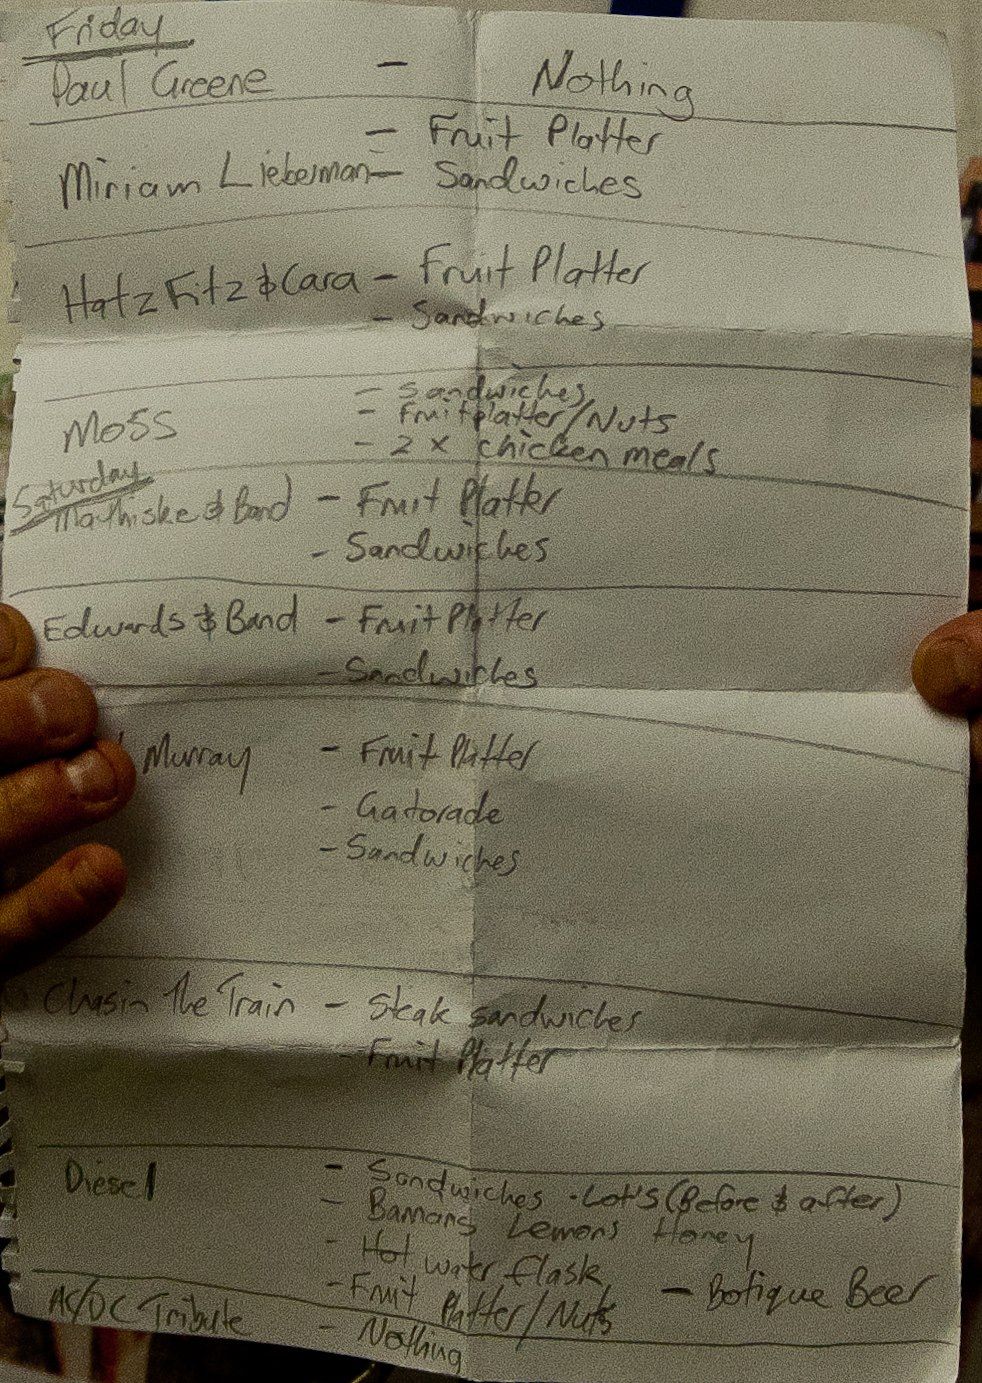 Friday
Paul Greene - Nothing
- Fruit Platter
Miriam Lieberman - Sandwiches
Hatz Fitz & Cara - Fruit Platter
- Sandwiches
- Sandwiches
Moss - Fruitplatter/Nuts
- 2 x chicken meals
Saturday
Mathiske & Band - Fruit Platter
- Sandwiches
Edwards & Band - Fruit Platter
- Sandwiches
Murray - Fruit Platter
- Gatorade
- Sandwiches
Chasin The Train - Steak sandwiches
- Fruit Platter
Diesel - Sandwiches - Lot's (Before & after)
- Bamans Lemons Honey
- Hot water flask
- Fruit Platter/Nuts - Botique Beer
AC/DC Tribute - Nothing